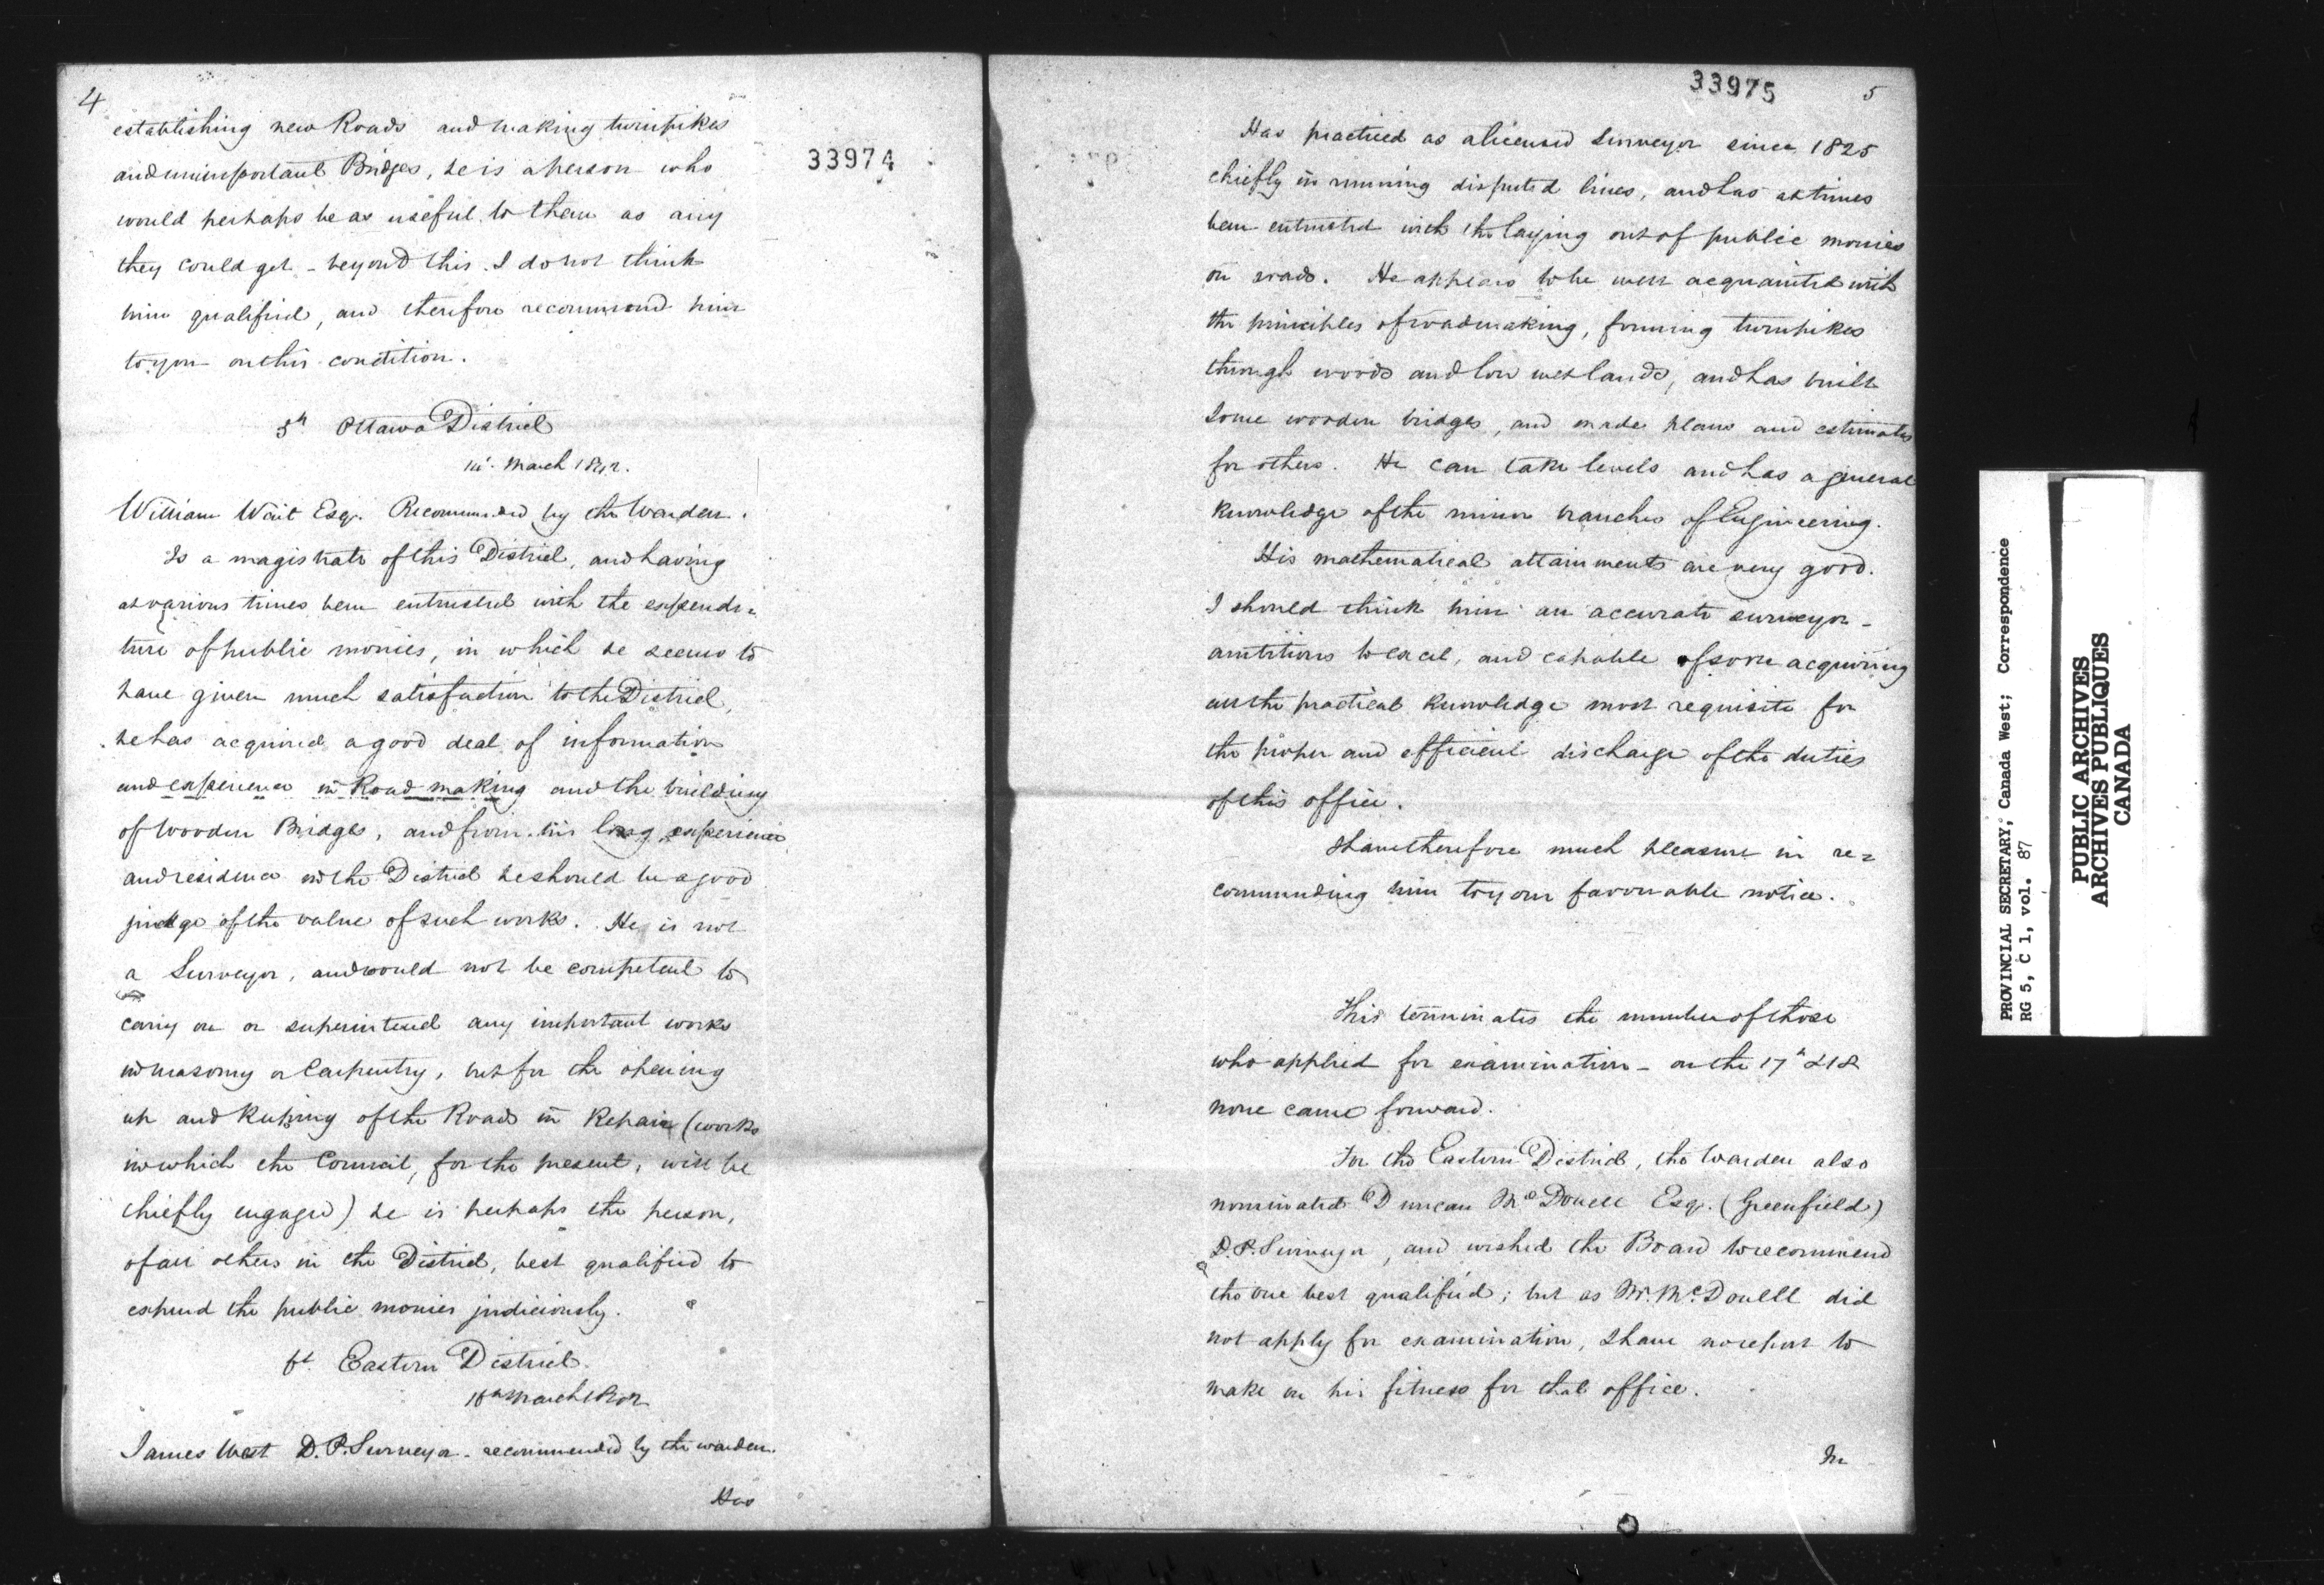 4
establishing new Roads and making turnpikes
and unimportant Bridges, he is a person who
33974
would perhaps be as useful to them as any
they could get - beyond this I do not think
him qualified, and therefore recommend him
to you on this condition.
5th Ottawa District
March 1842.
William Wait Esqr. Recommended by the Warden.
Is a magistrate of this District, and having
at various times been entrusted with the expendi=
ture of public monies, in which he seems to
have given much satisfaction to the District,
he has acquired a good deal of information
and experience in Road making and the building
of Wooden Bridges, and from his long experience
and residence in the District he should be a good
judge of the value of such works. He is not
a Surveyor, and would not be competent to
carry on or superintend any important works
in masonry or Carpentry, but for the opening
up and keeping of the Roads in Repair (works
in which the Council, for the present, will be
chiefly engaged) he is perhaps the person,
of all others in the District, best qualified to
expend the public monies judiciously.
6t. Eastern District.
March 1842
James West D.P. Surveyor - recommended by the warden.
Has
33975
5
Has practiced as a licensed Surveyor since 1825
chiefly in running disputed lines, and has at times
been entrusted with the laying out of public monies
on roads. He appears to be well acquainted with
the principles of roadmaking, forming turnpikes
through woods and low wet lands, and has built
some wooden bridges, and made plans and estimates
for others. He can take levels and has a general
knowledge of the minor branches of Engineering.
His mathematical attainments are very good.
I should think him an accurate surveyor -
ambitious to excel, and capable of soon acquiring
all the practical knowledge most requisite for
the proper and efficient discharge of the duties
of this office.
I have therefore much pleasure in re=
commending him to your favourable notice.
This terminates the number of those
who applied for examination - on the 17th & 18
none came forward.
For the Eastern District, the Warden also
nominated Duncan McDonell Esqr. (Greenfield)
D.P. Surveyor, and wished the Board to recommend
the one best qualified; but as Mr. McDonell did
not apply for examination, I have no report to
make on his fitness for that office.
PROVINCIAL SECRETARY; Canada West; Correspondence
RG 5, C 1, vol. 87
PUBLIC ARCHIVES
ARCHIVES PUBLIQUES
CANADA